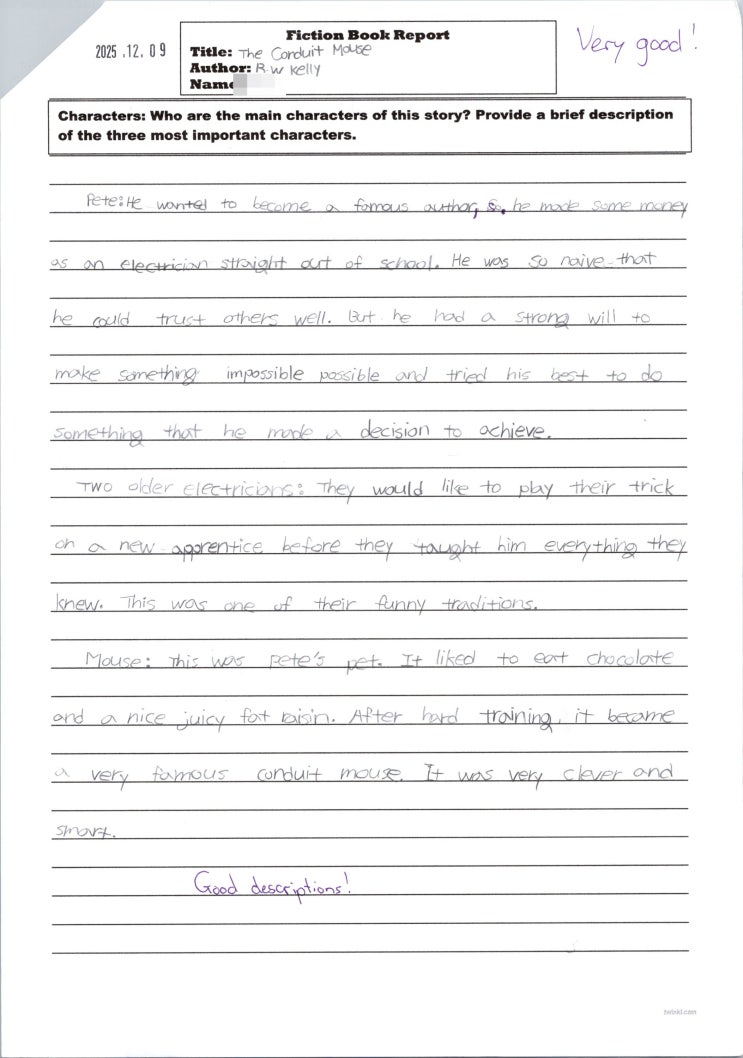 2025.12.09
Fiction Book Report
Title: The Conduit Mouse
Author: R.W Kelly
Name
Very good!
Characters: Who are the main characters of this story? Provide a brief description
of the three most important characters.
Pete: He wanted to become a famous author, so, he made some money
as an electrician straight out of school. He was so naive that
he could trust others well. But he had a strong will to
make something impossible possible and tried his best to do
something that he made a decision to achieve.
Two older electricians: They would like to play their trick
on a new apprentice before they taught him everything they
knew. This was one of their funny traditions.
Mouse: This was Pete's pet. It liked to eat chocolate
and a nice juicy fat raisin. After hard training, it became
a very famous conduit mouse. It was very clever and
smart.
Good descriptions!
twinkl.com